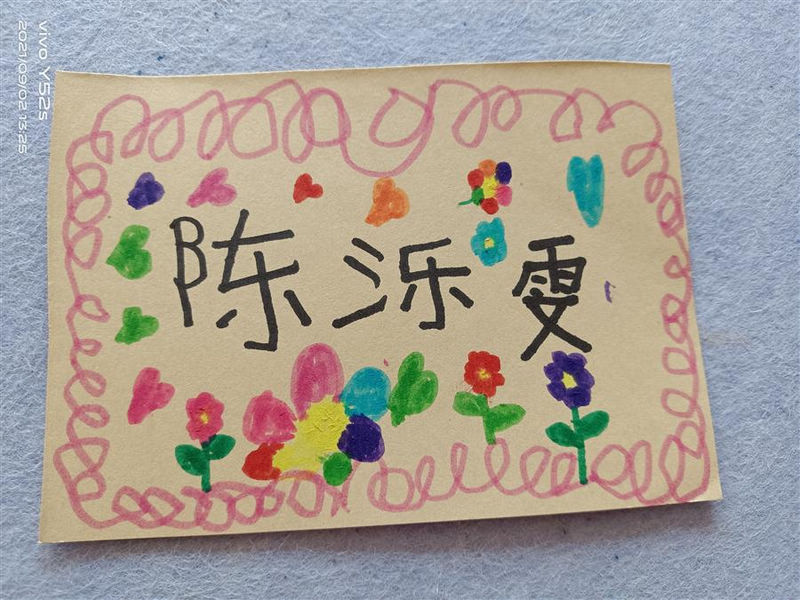 陈泺雯
vivo Y52s
2021/09/02 13:25